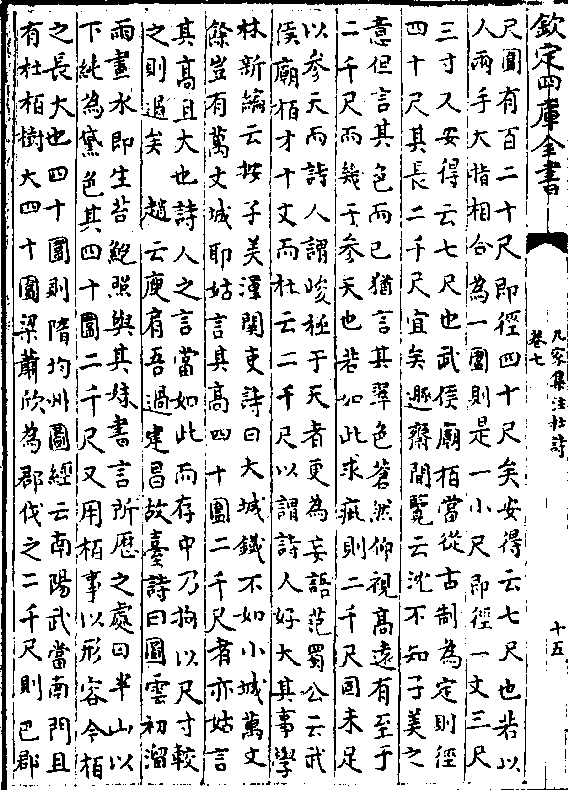 欽定四庫全書
九家集注杜詩
卷七
十五
尺圍有百二十尺即徑四十尺矣安得云七尺也若以
人兩手大指相合為一圍則是一小尺即徑一丈三尺
三寸又安得云七尺也武侯廟柏當從古制為定則徑
四十尺其長二千尺宜矣遯齋閒覽云沈不知子美之
意但言其色而已猶言其翠色蒼然仰視高遠有至于
二千尺而幾于參天也若如此求疵則二千尺固未足
以參天而詩人謂峻極于天者更為妄語范蜀公云武
侯廟柏才十丈而杜云二千尺以謂詩人好大其事學
林新編云按子美潼關吏詩曰大城鐵不如小城萬丈
餘豈有萬丈城耶姑言其高四十圍二千尺者亦姑言
其高且大也詩人之言當如此而存中乃拘以尺寸較
之則過矣 趙云庾肩吾過建昌故臺詩曰圓雲初溜
雨畫水即生苔鮑照與其妹書言所歴之處曰半山以
下純為黛色其四十圍二千尺又用柏事以形容今柏
之長大也四十圍則隋均州圖經云南陽武當南門且
有杜柏樹大四十圍梁蕭欣為郡伐之二千尺則巴郡